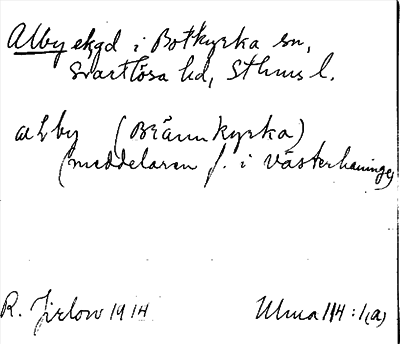 Alby ekgd i Botkyrka sn,
Svartlösa hd, Sthms l.
alby (Brännkyrka)
(meddelaren f. i Västerhaninge)
R. Jirlow 1914
Ulma 114:1(a)